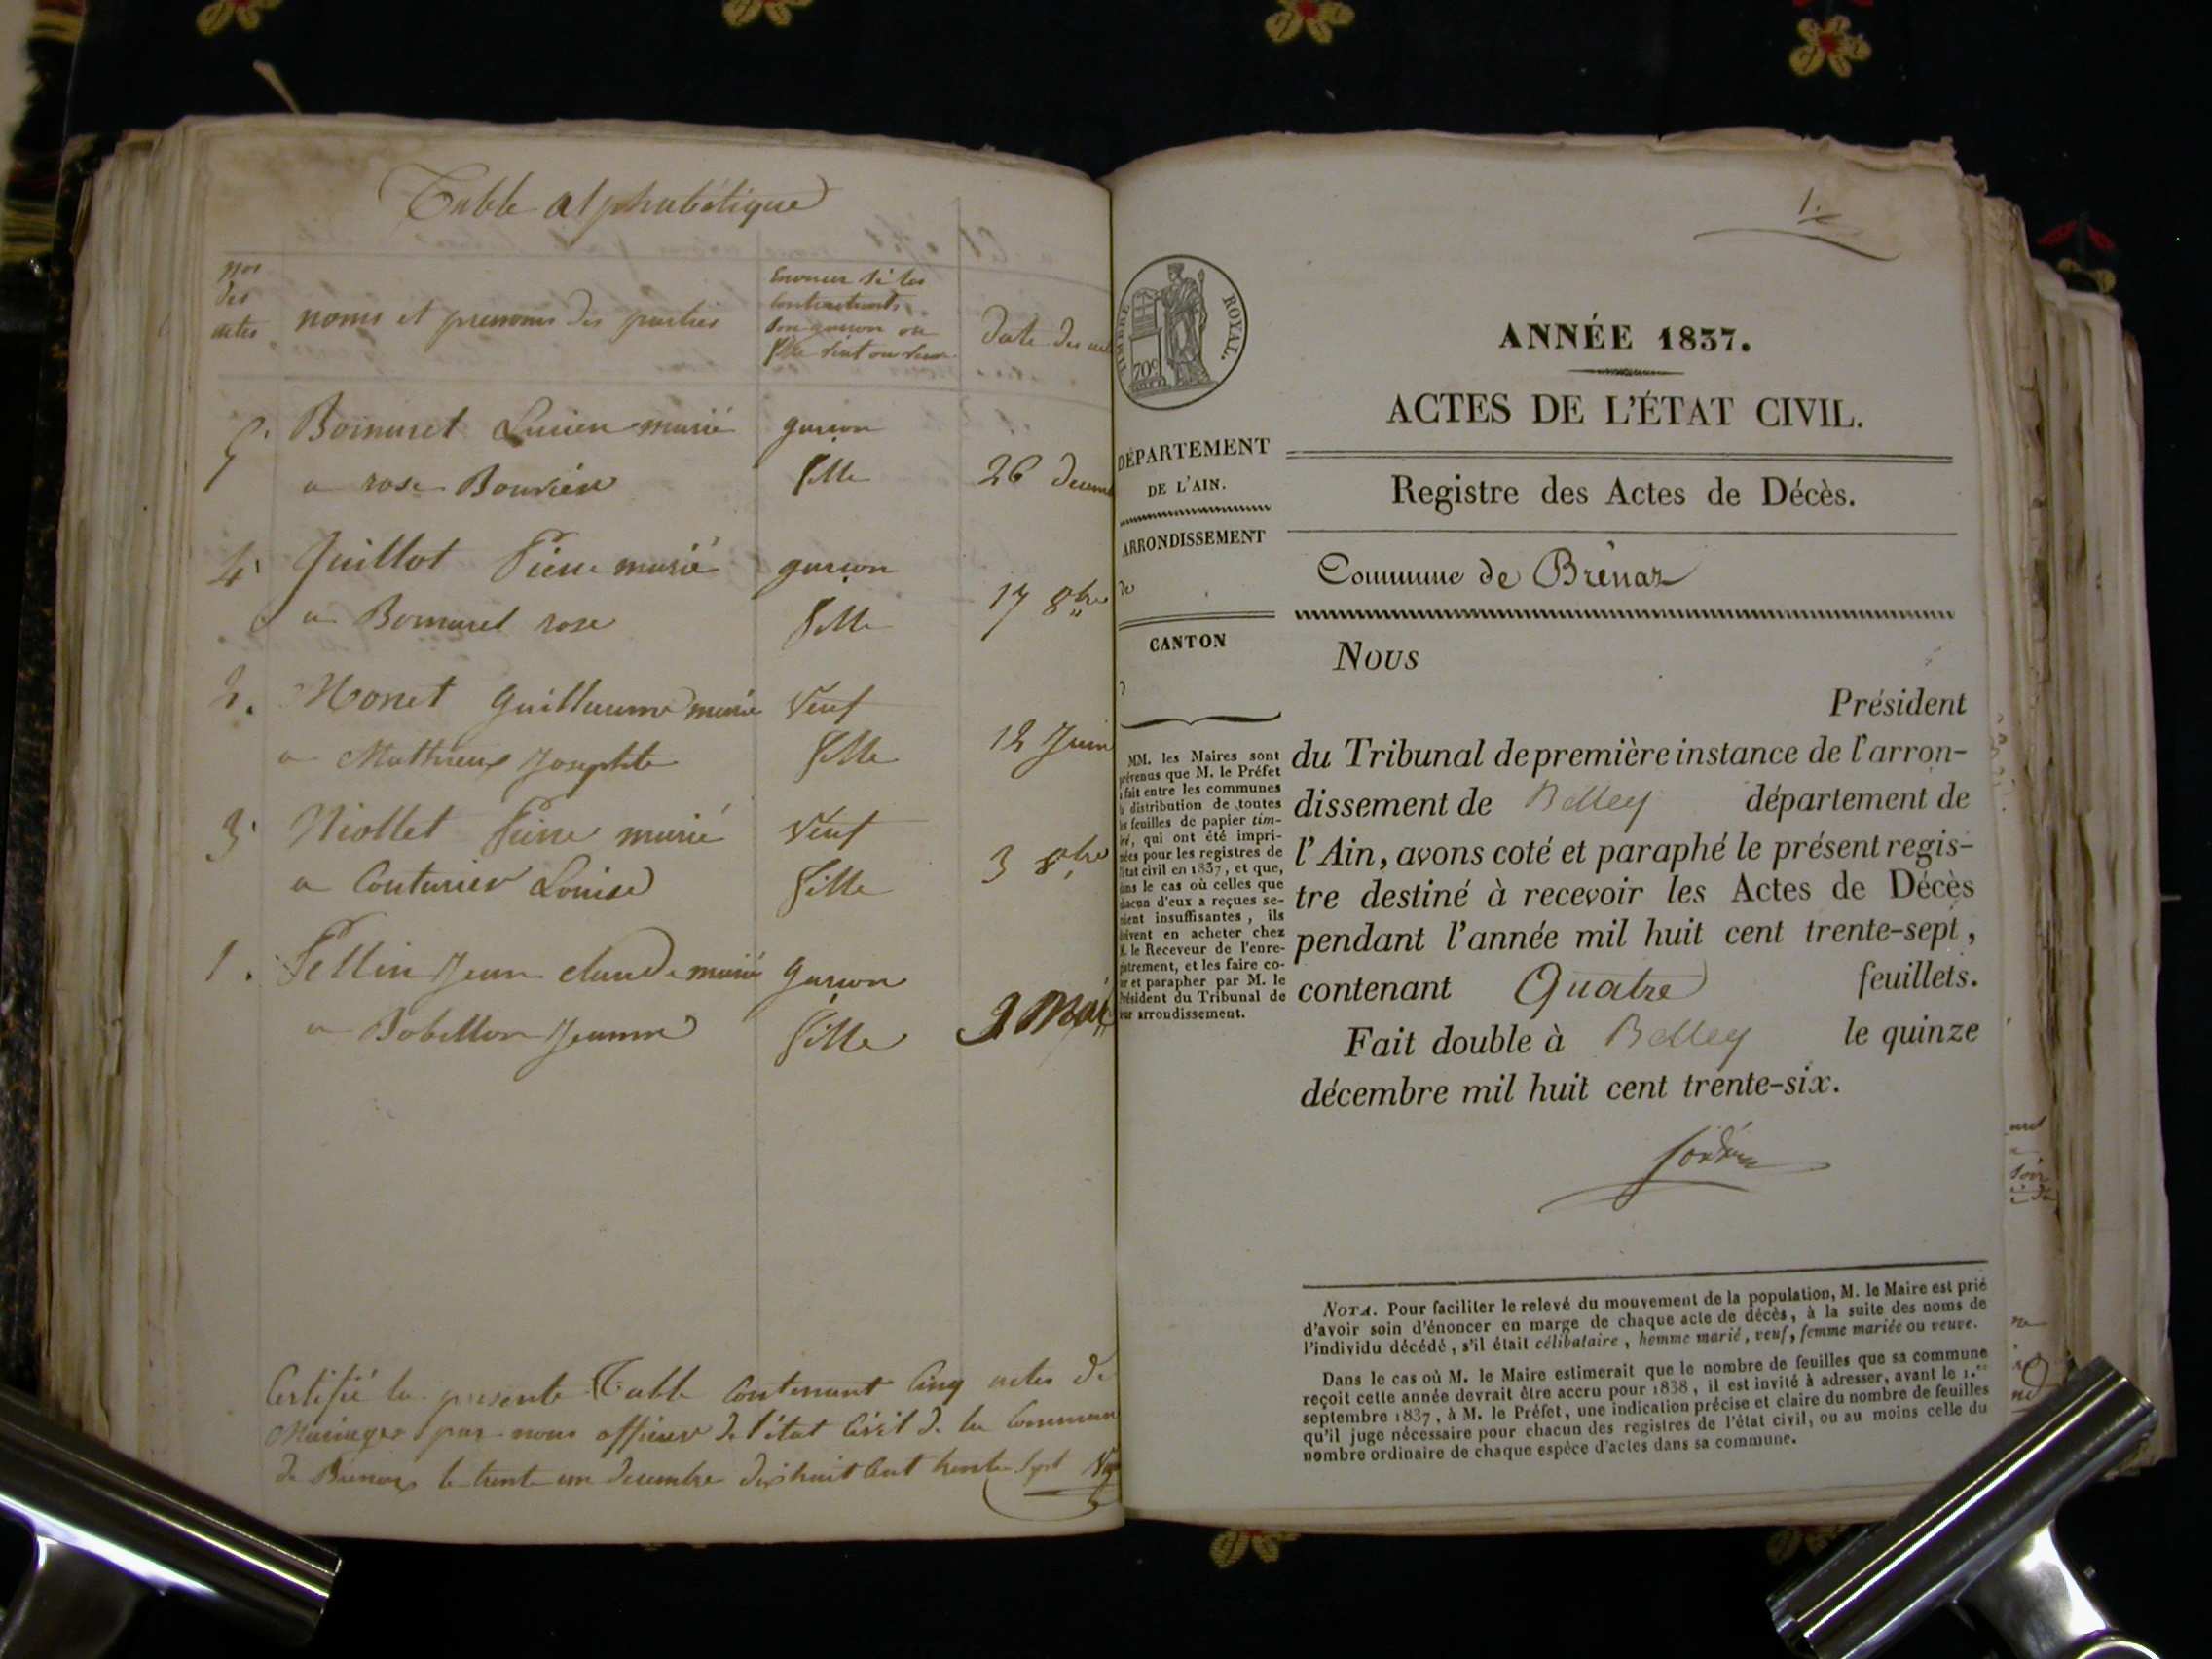 Table alphabétique
nos
des
actes
noms et prenoms des parties
Enoncer si les
contractants
son garçon ou
fille veuf ou veuve
date des
5. Bornuret Lucien marié garçon
a rose Bouvier fille 26 decem
4. Guillot Pierre marié garçon
a Bornuret rose fille 17 8bre
2. Monet guillaume marié veuf
a Mathieux Josephte fille 12 Juin
3. Niollet Pierre marié veuf
a Couturier Louise fille 3 8bre
1. Pellin Jean claude marié garçon
a Bobillon Jeanne fille 9 Mai
Certifié la presente Table contenant cinq actes de
Mariages par nous officier de l'état civil de la commune
de Brenaz le trente un decembre dix huit cent trente sept
1.
TIMBRE ROYAL.
70c
DÉPARTEMENT
DE L'AIN.
ARRONDISSEMENT
de
CANTON
MM. les Maires sont
prévenus que M. le Préfet
a fait entre les communes
la distribution de toutes
les feuilles de papier tim-
bré, qui ont été impri-
mées pour les registres de
l'état civil en 1837, et que,
dans le cas où celles que
chacun d'eux a reçues se-
raient insuffisantes, ils
doivent en acheter chez
M. le Receveur de l'enre-
gistrement, et les faire co-
ter et parapher par M. le
Président du Tribunal de
leur arrondissement.
ANNÉE 1837.
ACTES DE L'ÉTAT CIVIL.
Registre des Actes de Décès.
Commune de Brénaz
Nous
Président
du Tribunal de première instance de l'arron-
dissement de Belley département de
l'Ain, avons coté et paraphé le présent regis-
tre destiné à recevoir les Actes de Décès
pendant l'année mil huit cent trente-sept,
contenant Quatre feuillets.
Fait double à Belley le quinze
décembre mil huit cent trente-six.
NOTA. Pour faciliter le relevé du mouvement de la population, M. le Maire est prié
d'avoir soin d'énoncer en marge de chaque acte de décès, à la suite des noms de
l'individu décédé, s'il était célibataire, homme marié, veuf, femme mariée ou veuve.
Dans le cas où M. le Maire estimerait que le nombre de feuilles que sa commune
reçoit cette année devrait être accru pour 1838, il est invité à adresser, avant le 1.er
septembre 1837, à M. le Préfet, une indication précise et claire du nombre de feuilles
qu'il juge nécessaire pour chacun des registres de l'état civil, ou au moins celle du
nombre ordinaire de chaque espèce d'actes dans sa commune.